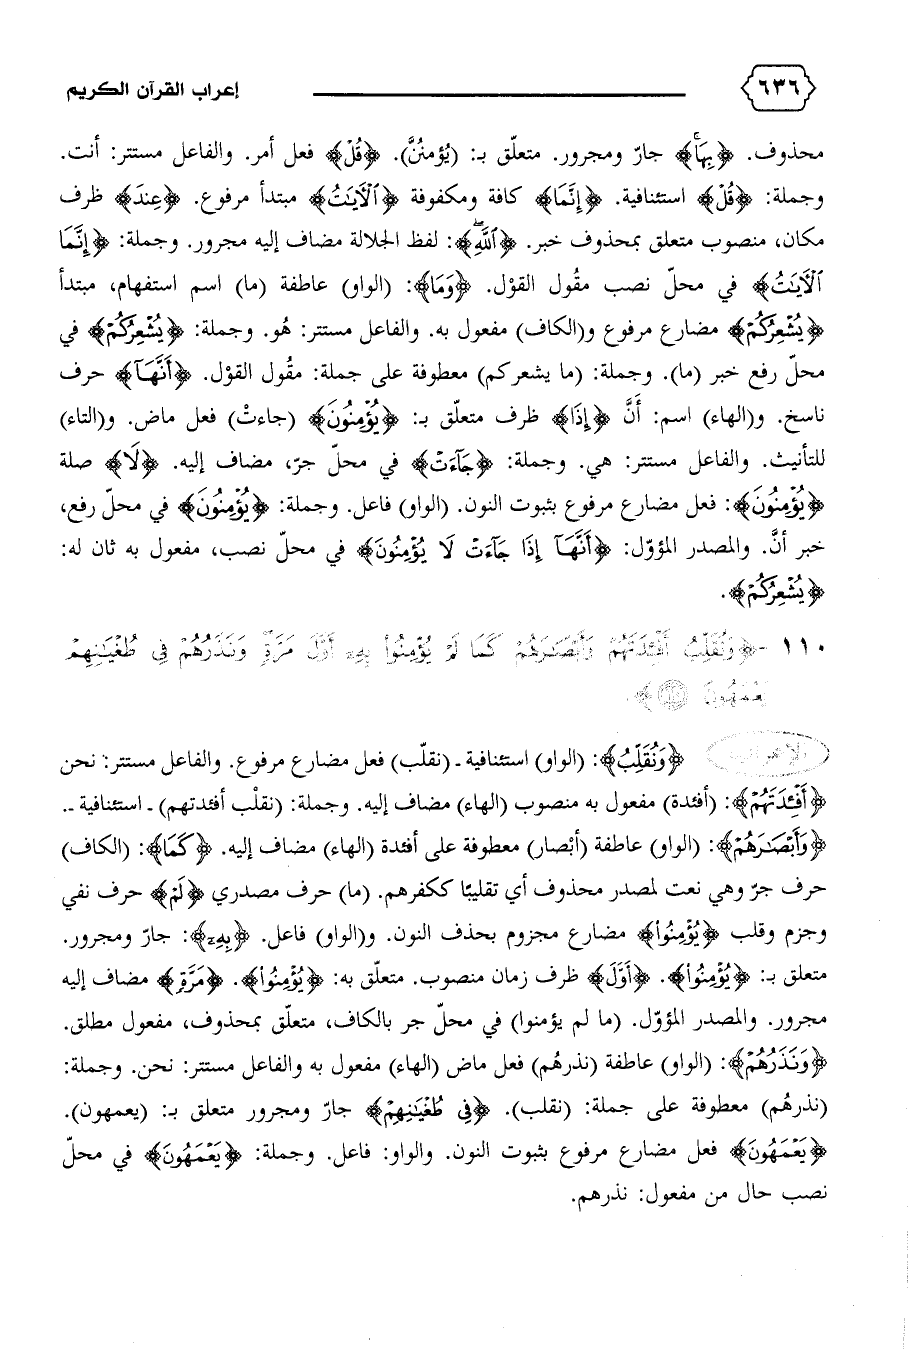 ٦٣٦ إعراب القرآن الكريم
محذوف. ﴿بِهَاۚ﴾ جارّ ومجرور. متعلّق بـ: (يُؤمنُنَّ). ﴿قُلْ﴾ فعل أمر. والفاعل مستتر: أنت.
وجملة: ﴿قُلْ﴾ استئنافية. ﴿إِنَّمَا﴾ كافة ومكفوفة ﴿ٱلْأَيَٰتُ﴾ مبتدأ مرفوع. ﴿عِندَ﴾ ظرف
مكان، منصوب متعلق بمحذوف خبر. ﴿ٱللَّهِۖ﴾: لفظ الجلالة مضاف إليه مجرور. وجملة: ﴿إِنَّمَا
ٱلْأَيَٰتُ﴾ في محلّ نصب مقُول القوْل. ﴿وَمَا﴾: (الواو) عاطفة (ما) اسم استفهام، مبتدأ
﴿يُشْعِرُكُمْ﴾ مضارع مرفوع و(الكاف) مفعول به. والفاعل مستتر: هُو. وجملة: ﴿يُشْعِرُكُمْ﴾ في
محلّ رفع خبر (ما). وجملة: (ما يشعركم) معطوفة على جملة: مقُول القوْل. ﴿أَنَّهَآ﴾ حرف
ناسخ. و(الهاء) اسم: أَنَّ ﴿إِذَا﴾ ظرف متعلّق بـ: ﴿يُؤْمِنُونَ﴾ (جاءتْ) فعل ماض. و(التاء)
للتأنيث. والفاعل مستتر: هي. وجملة: ﴿جَآءَتْ﴾ في محلّ جرّ، مضاف إليه. ﴿لَا﴾ صلة
﴿يُؤْمِنُونَ﴾: فعل مضارع مرفوع بثبوت النون. (الواو) فاعل. وجملة: ﴿يُؤْمِنُونَ﴾ في محلّ رفع،
خبر أنَّ. والمصدر المؤوّل: ﴿أَنَّهَآ إِذَا جَآءَتْ لَا يُؤْمِنُونَ﴾ في محلّ نصب، مفعول به ثان له:
﴿يُشْعِرُكُمْ﴾.
١١٠ - ﴿وَنُقَلِّبُ أَفْـِٔدَتَهُمْ وَأَبْصَٰرَهُمْ كَمَا لَمْ يُؤْمِنُوا۟ بِهِۦٓ أَوَّلَ مَرَّةٍ وَنَذَرُهُمْ فِى طُغْيَٰنِهِمْ
يَعْمَهُونَ ١١٠﴾.
الإعراب: ﴿وَنُقَلِّبُ﴾: (الواو) استئنافية ـ (نقلّب) فعل مضارع مرفوع. والفاعل مستتر: نحن
﴿أَفْـِٔدَتَهُمْ﴾: (أفئدة) مفعول به منصوب (الهاء) مضاف إليه. وجملة: (نقلْب أفئدتهم) ـ استئنافية ـ.
﴿وَأَبْصَٰرَهُمْ﴾: (الواو) عاطفة (أبْصار) معطوفة على أفئدة (الهاء) مضاف إليه. ﴿كَمَا﴾: (الكاف)
حرف جرّ وهي نعت لمصدر محذوف أي تقليبًا ككفرهم. (ما) حرف مصدري ﴿لَمْ﴾ حرف نفي
وجزم وقلب ﴿يُؤْمِنُوا۟﴾ مضارع مجزوم بحذف النون. و(الواو) فاعل. ﴿بِهِۦ﴾: جارّ ومجرور.
متعلق بـ: ﴿يُؤْمِنُوا۟﴾. ﴿أَوَّلَ﴾ ظرف زمان منصوب. متعلّق به: ﴿يُؤْمِنُوا۟﴾. ﴿مَرَّةٍ﴾ مضاف إليه
مجرور. والمصدر المؤوّل. (ما لم يؤمنوا) في محلّ جر بالكاف، متعلّق بمحذوف، مفعول مطلق.
﴿وَنَذَرُهُمْ﴾: (الواو) عاطفة (نذرهُم) فعل ماض (الهاء) مفعول به والفاعل مستتر: نحن. وجملة:
(نذرهُم) معطوفة على جملة: (نقلب). ﴿فِى طُغْيَٰنِهِمْ﴾ جارّ ومجرور متعلق بـ: (يعمهون).
﴿يَعْمَهُونَ﴾ فعل مضارع مرفوع بثبوت النون. والواو: فاعل. وجملة: ﴿يَعْمَهُونَ﴾ في محلّ
نصب حال من مفعول: نذرهم.